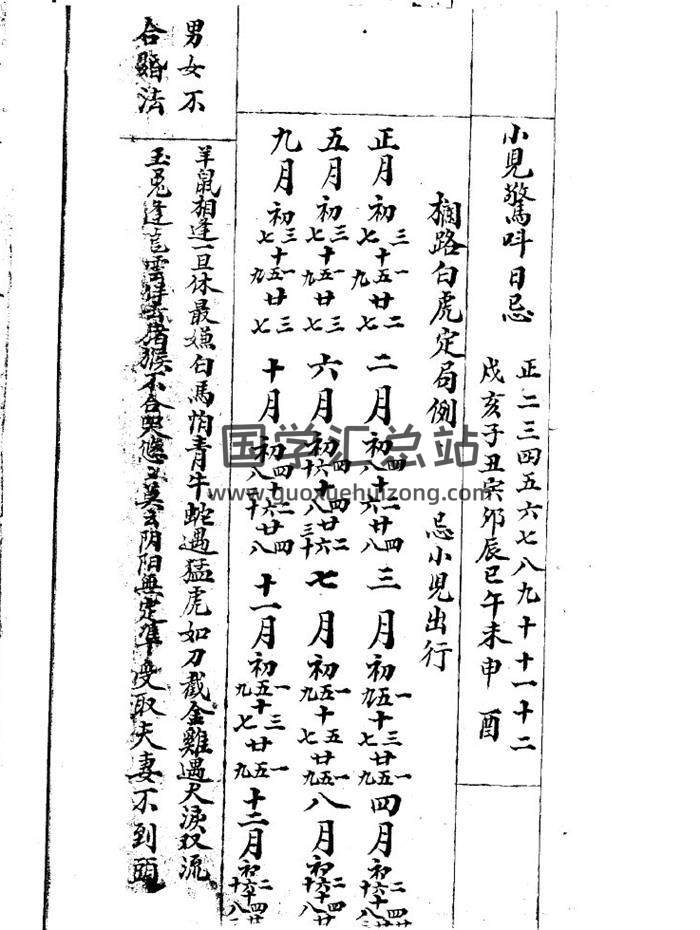 小児驚呌日忌
正二三四五六七八九十十一十二
戌亥子丑寅卯辰巳午未申酉
欄路白虎定局例 忌小児出行
正月初三七十一五九廿二七
二月初四八十二六廿四八
三月初一五九十三七廿一五九
四月初二六十
五月初三七十一五九廿三七
六月初
七月初一五九十五七廿一五九
八月初
九月初三七十一五九廿三七
十月初四八十二六廿四八
十一月初一五九十三七廿一五九
十二月初
男女不
合婚法
羊鼠相逢一旦休最嫌白馬怕青牛蛇遇猛虎如刀截金雞遇犬淚双流
玉兎逢 雲 猪猴不合 莫 阴阳無定準 受取夫妻不到頭
国学汇总站
www.guoxuehuizong.com